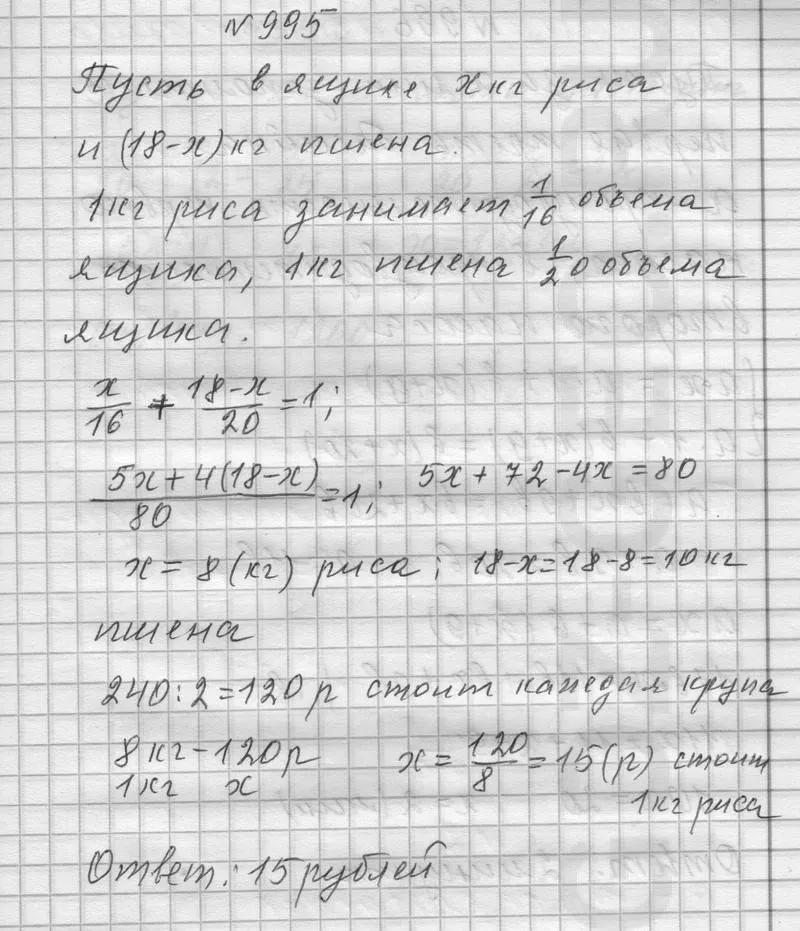 №995
Пусть в ящике x кг риса
и (18-x) кг пшена.
1 кг риса занимает 1/16 объема
ящика, 1 кг пшена 1/20 объема
ящика.
x/16 + 18-x/20 = 1;
5x+4(18-x)/80 = 1; 5x+72-4x=80
x = 8 (кг) риса; 18-x=18-8=10 кг
пшена
240:2=120 р стоит каждая крупа
8 кг - 120 р x = 120/8 = 15 (р) стоит
1 кг x 1 кг риса
Ответ: 15 рублей